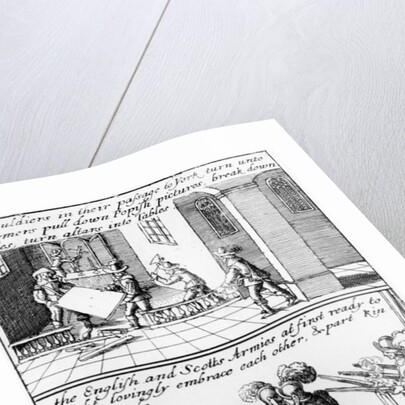 uldiers in their passage to York turn unto
rmers pull down Popish pictures, break down
es, turn altars into tables
the English and Scotts Armies at first ready to
lovingly embrace each other, & part kin